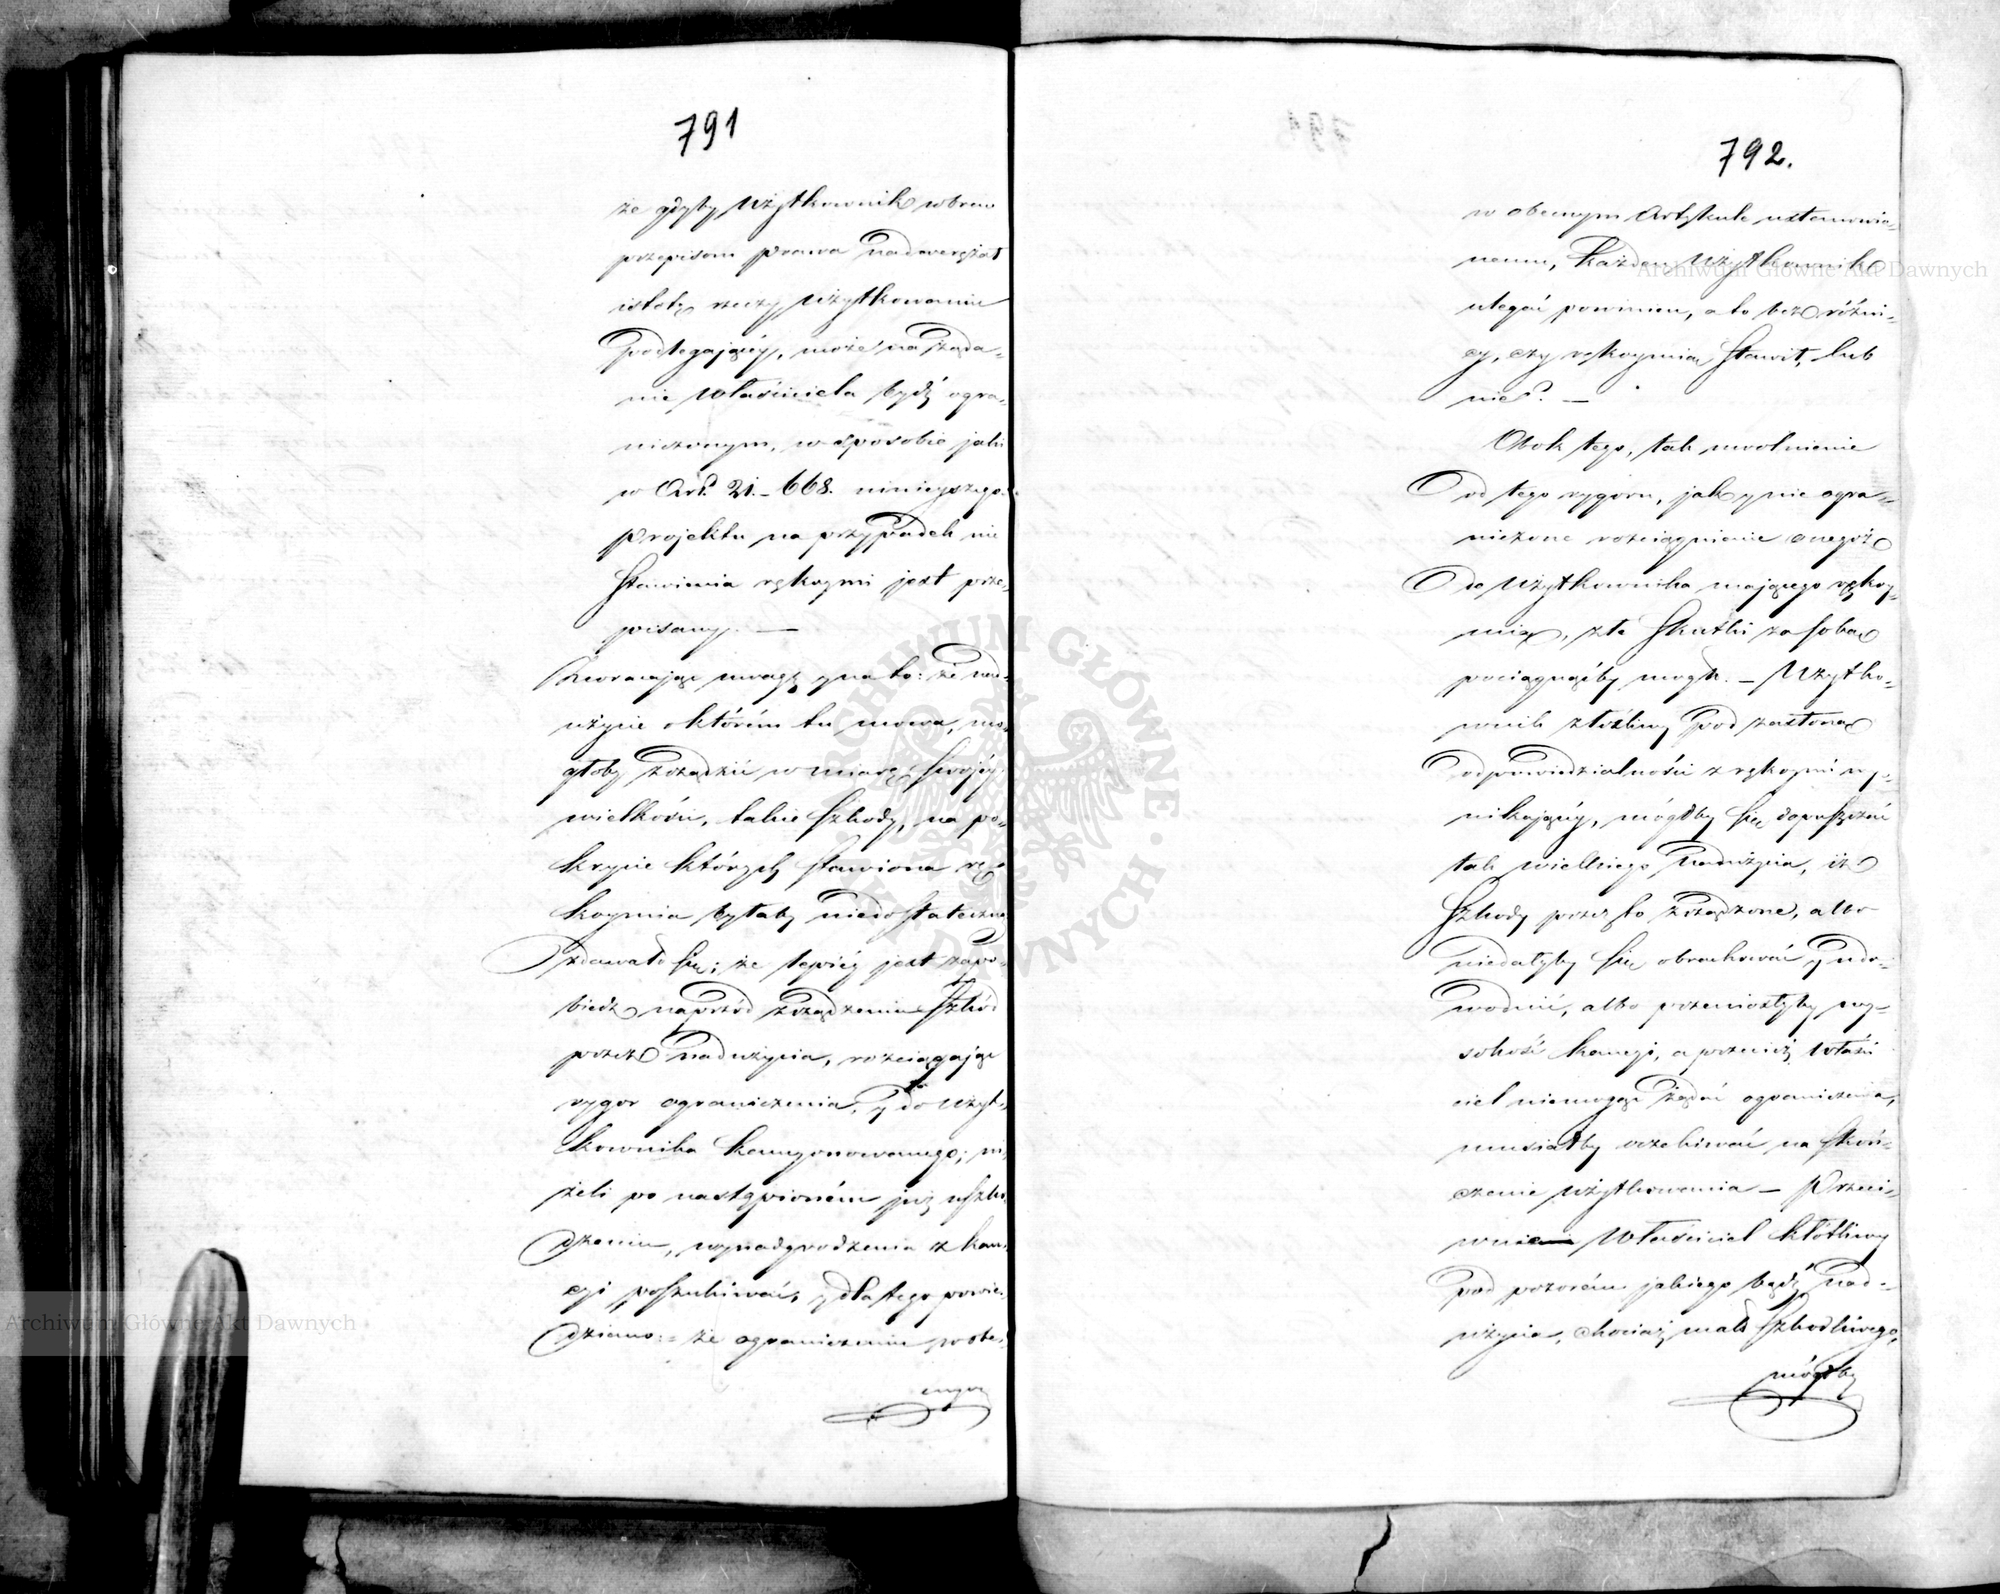 791
że gdyby Użytkownik wbrew
przepisom prawa nadwerężał
istotę rzeczy użytkowaniu
podlegającéy, może na żąda-
nie Właściciela bydź ogra-
niczonym, w sposobie jaki
w Art. 21.-668. niniejszego
projektu na przypadek nie
stawienia rękoymi jest prze-
pisany. —
Zwracając uwagę y na to: że nad-
użycie o którém tu mowa, mo-
głoby zrządzić w miarę swojéy
wielkości, takie szkody, na po-
krycie których stawiona rę-
koymia byłaby niedostateczną
zdawało się; że lepiéy jest zapo-
biedz naprzód zrządzeniu szkód
przez nadużycia, rozciągając
rygor ograniczenia, y do Użyt-
kownika kaucyonowanego; ni-
żeli po nastąpioném już uszko-
dzeniu, wynadgrodzenia z kau-
cyi poszukiwać, y dla tego powie-
dziano:- że ograniczeniu posta-
792.
w obecnym Artykule ustanowio-
nemu, każden Użytkownik
ulegać powinien, a to bez różni-
cy, czy rękoymią stawił, lub
nie. —
Obok tego, tak uwolnienie
od tego rygoru, jak y nie ogra-
niczone rozciągnienie onegoż
do Użytkownika mającego rękoy-
mią, złe skutki za sobą
pociągnąćby mogło. — Użytko-
wnik złośliwy pod zasłoną
odpowiedzialności z rękoymi wy-
nikającéy, mógłby się dopuszczać
tak wielkiego nadużycia, iż
szkody przez to zrządzone, albo
niedałyby się obrachować y udo-
wodnić, albo przeniosłyby wy-
sokość kaucyi, a przecież właści
ciel niemogąc żądać ograniczenia,
musiałby oczekiwać na skoń-
czenie użytkowania — Przeci-
wnie Właściciel kłótliwy
pod pozorém jakiego bądź nad-
użycia, chociaż mało szkodliwego,
mógłby
Archiwum Główne Akt Dawnych
Archiwum Główne Akt Dawnych
ARCHIWUM GŁÓWNE AKT DAWNYCH